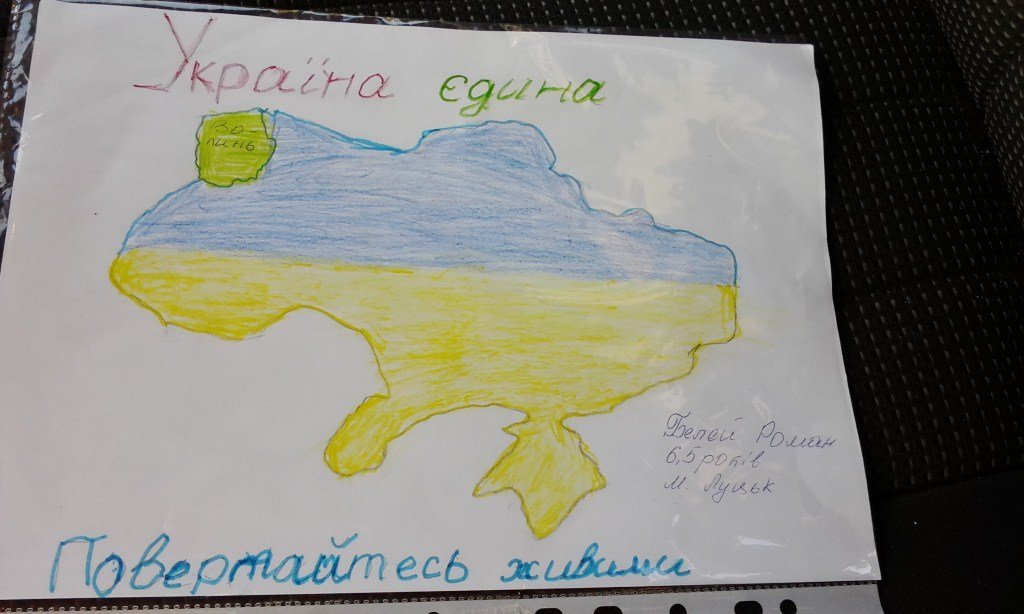 Україна єдина
Во
линь
Белей Роман
6,5 років
м. Луцьк
Повертайтесь живими